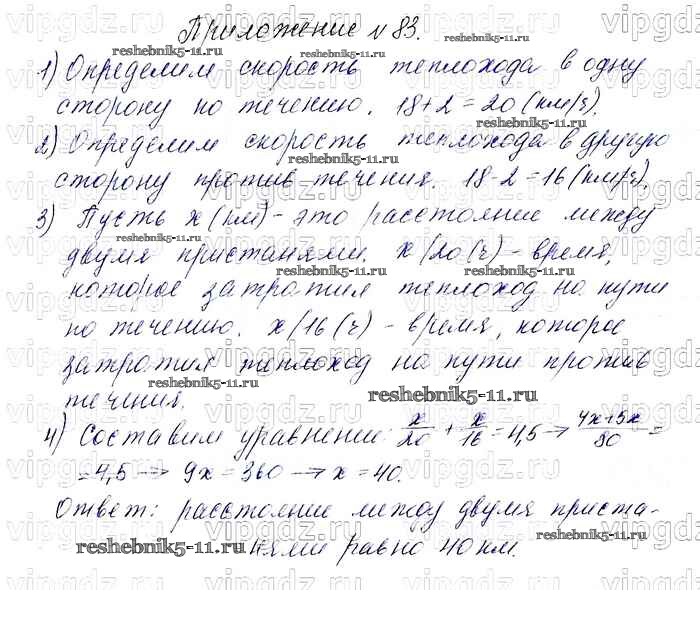 Приложение N 83.
1) Определим скорость теплохода в одну
сторону по течению. 18+2=20 (км/ч).
2) Определим скорость теплохода в другую
сторону против течения. 18-2=16 (км/ч).
3) Пусть x (км) - это расстояние между
двумя пристанями. x/20 (ч) - время,
которое затратил теплоход на пути
по течению. x/16 (ч) - время, которое
затратил теплоход на пути против
течения.
4) Составим уравнение: x/20 + x/16 = 4,5 → 4x+5x/80 =
=4,5 → 9x=360 → x=40.
Ответ: расстояние между двумя приста-
нями равно 40 км.
reshebnik5-11.ru
vipgdz.ru